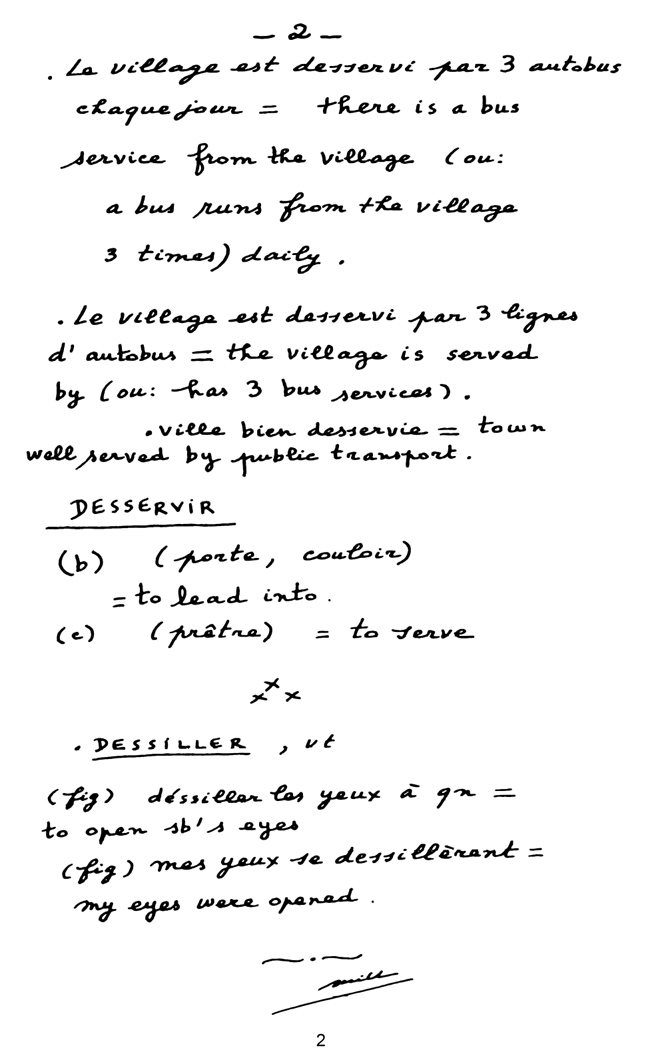 — 2 —
. Le village est desservi par 3 autobus
chaque jour = there is a bus
service from the village (ou:
a bus runs from the village
3 times) daily .
. Le village est desservi par 3 lignes
d'autobus = the village is served
by (ou: has 3 bus services) .
. ville bien desservie = town
well served by public transport .
DESSERViR
(b) (porte, couloir)
= to lead into .
(c) (prêtre) = to serve
x x x
. DESSiLLER , vt
(fig) déssiller les yeux à qn =
to open sb's eyes
(fig) mes yeux se dessillèrent =
my eyes were opened .
— . —
2